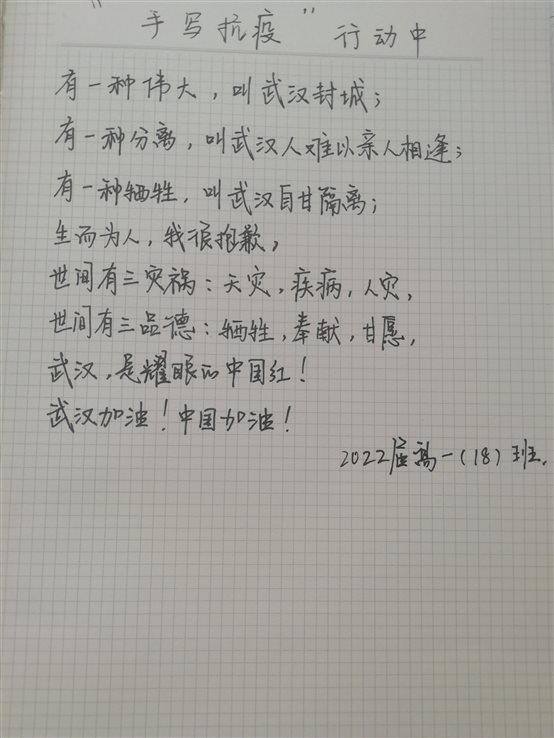 "手写抗疫"行动中
有一种伟大，叫武汉封城；
有一种分离，叫武汉人难以亲人相逢；
有一种牺牲，叫武汉自甘隔离；
生而为人，我很抱歉，
世间有三灾祸：天灾，疾病，人灾，
世间有三品德：牺牲，奉献，甘愿，
武汉，是耀眼的中国红！
武汉加油！中国加油！
2022届高一（18）班.